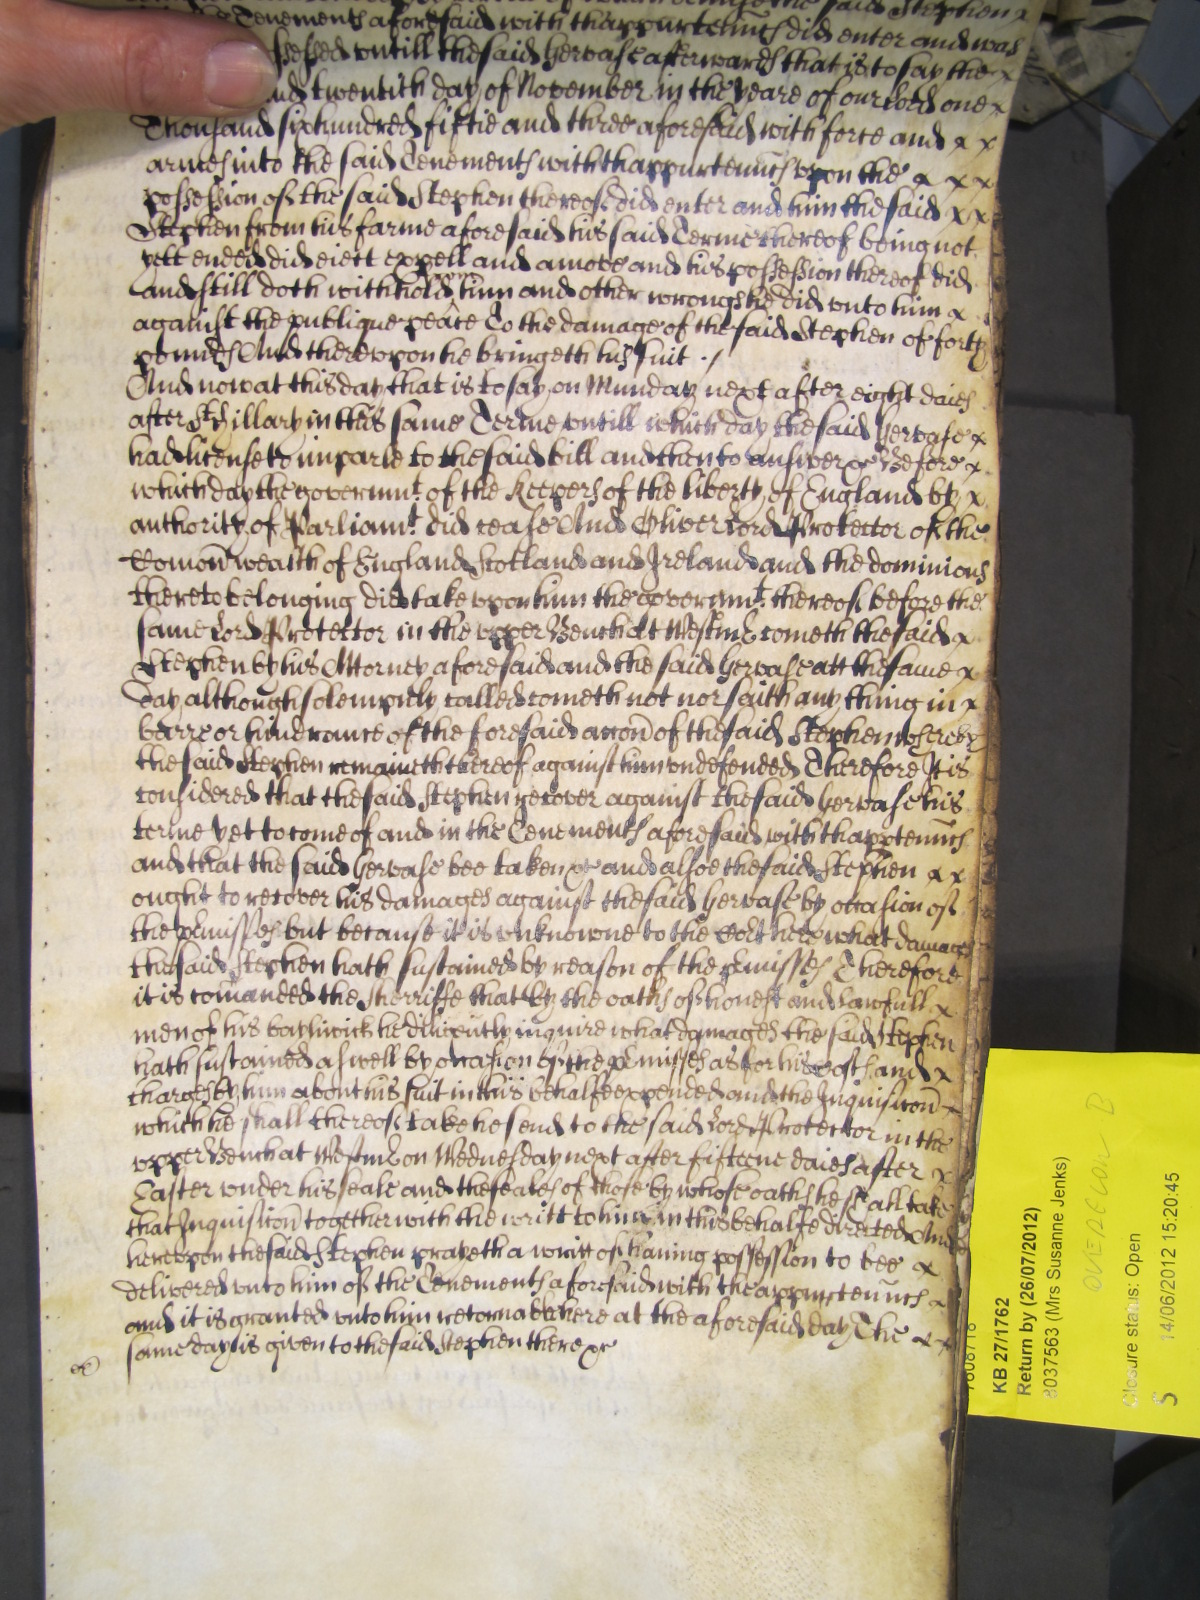 the said Stephen x
Tenements aforesaid with thappurtenñcs did enter and was
ssessed untill the said Gervase afterwards that is to say the x
and twentith day of November in the yeare of our Lord one x
Thousand six hundred fiftie and three aforesaid with force and x x
armes into the said Tenements with thappurtenñcs upon the x x x
possession of the said Stephen thereof did enter and him the said x x
Stephen from his farme aforesaid his said Terme thereof being not
yett ended did eiect expell and amove and his possession thereof did
and still doth withhold from him and other wrongs he did unto him x
against the publique peace To the damage of the said Stephen of forty
pounds And thereupon he bringeth his suit ./
And now at this day that is to say on Munday next after eight daies
after St Hillary in this same Terme untill which day the said Gervase x
had license to imparle to the said bill and then to answer &c Before x
which day the governmt of the Keepers of the liberty of England by x
authority of Parliamt did cease And Oliver Lord Protector of the
Comon wealth of England Scotland and Ireland and the dominions
thereto belonging did take upon him the governmt thereof before the
same Lord Protector in the upper Bench at Westmr cometh the said x
Stephen by his Attorney aforesaid and the said Gervase att the same x
day although solempnly called cometh not nor saith any thing in x
barre or hinderance of the foresaid accon of the said Stephen whereby
the said Stephen remaineth thereof against him undefended Therefore It is
considered that the said Stephen recover against the said Gervase his
terme yet to come of and in the Tenements aforesaid with thapptenñcs
and that the said Gervase bee taken &c and alsoe the said Stephen x x
ought to recover his damages against the said Gervase by occasion of
the pmisses but because it is unknowne to the Cort here what damages
the said Stephen hath sustained by reason of the pmisses Therefore
it is comanded the Sherriffe that by the oaths of honest and lawfull x
men of his bailiwick he diligently inquire what damages the said Stephen
hath sustained aswell by occasion of the pmisses as for his costs and x
charges by him about his suit in this behalfe expended and the Inquisicon x
which he shall thereof take he send to the said Lord Protector in the
upper Bench at Westmr on Wednesday next after fifteene daies after x
Easter under his seale and the seales of those by whose oaths he shall take
that Inquisicon together with the writt to him in this behalfe directed And
hereupon the said Stephen prayeth a writt of having possession to bee x
delivered unto him of the Tenements aforesaid with the appurtenñcs x
and it is granted unto him retornable here at the aforesaid day The x x
same day is given to the said Stephen there &c
KB 27/1762
Return by (26/07/2012)
8037563 (Mrs Susanne Jenks)
Closure status: Open
S 14/06/2012 15:20:45